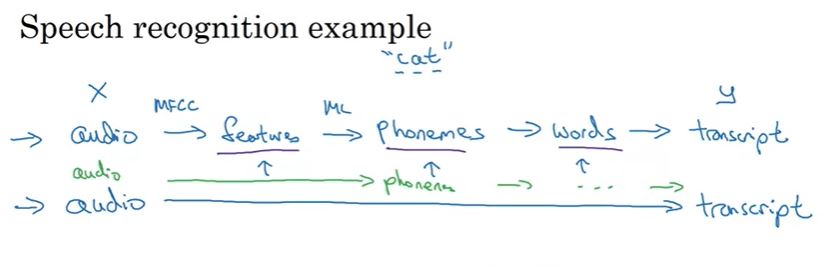 Speech recognition example
"cat"
X MFCC ML y
→ audio → features → Phonemes → words → transcript
audio → phonemes → ... →
→ audio → transcript